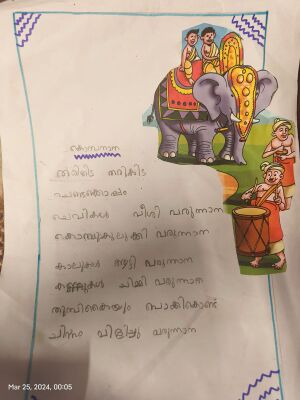 കൊമ്പനാന
ചെണ്ടക്കൊട്ടും
ചെവികൾ വീശി വരുന്നാന
കൊമ്പുകുലുക്കി വരുന്നാന
കാലുകൾ നീട്ടി വരുന്നാന
കണ്ണുകൾ ചിമ്മി വരുന്നാന
തുമ്പികൈയ്യും പൊക്കികൊണ്ട്
ചിന്നം വിളിച്ചു വരുന്നാന
Mar 25, 2024, 00:05